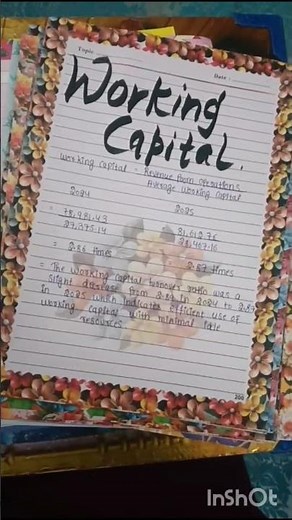 Topic
Date
Working
Capital.
Working Capital - Revenue from Operations
Average Working Capital
2024 2025
= 78,981.43 81,612.76
27,375.14 28,467.16
= 2.86 times 2.87 times
= The working capital turnover ratio was a
slight decrease from 2.87 in 2024 to
in 2025 which indicates efficient use of
working capital with minimal idle
resources
InShOt